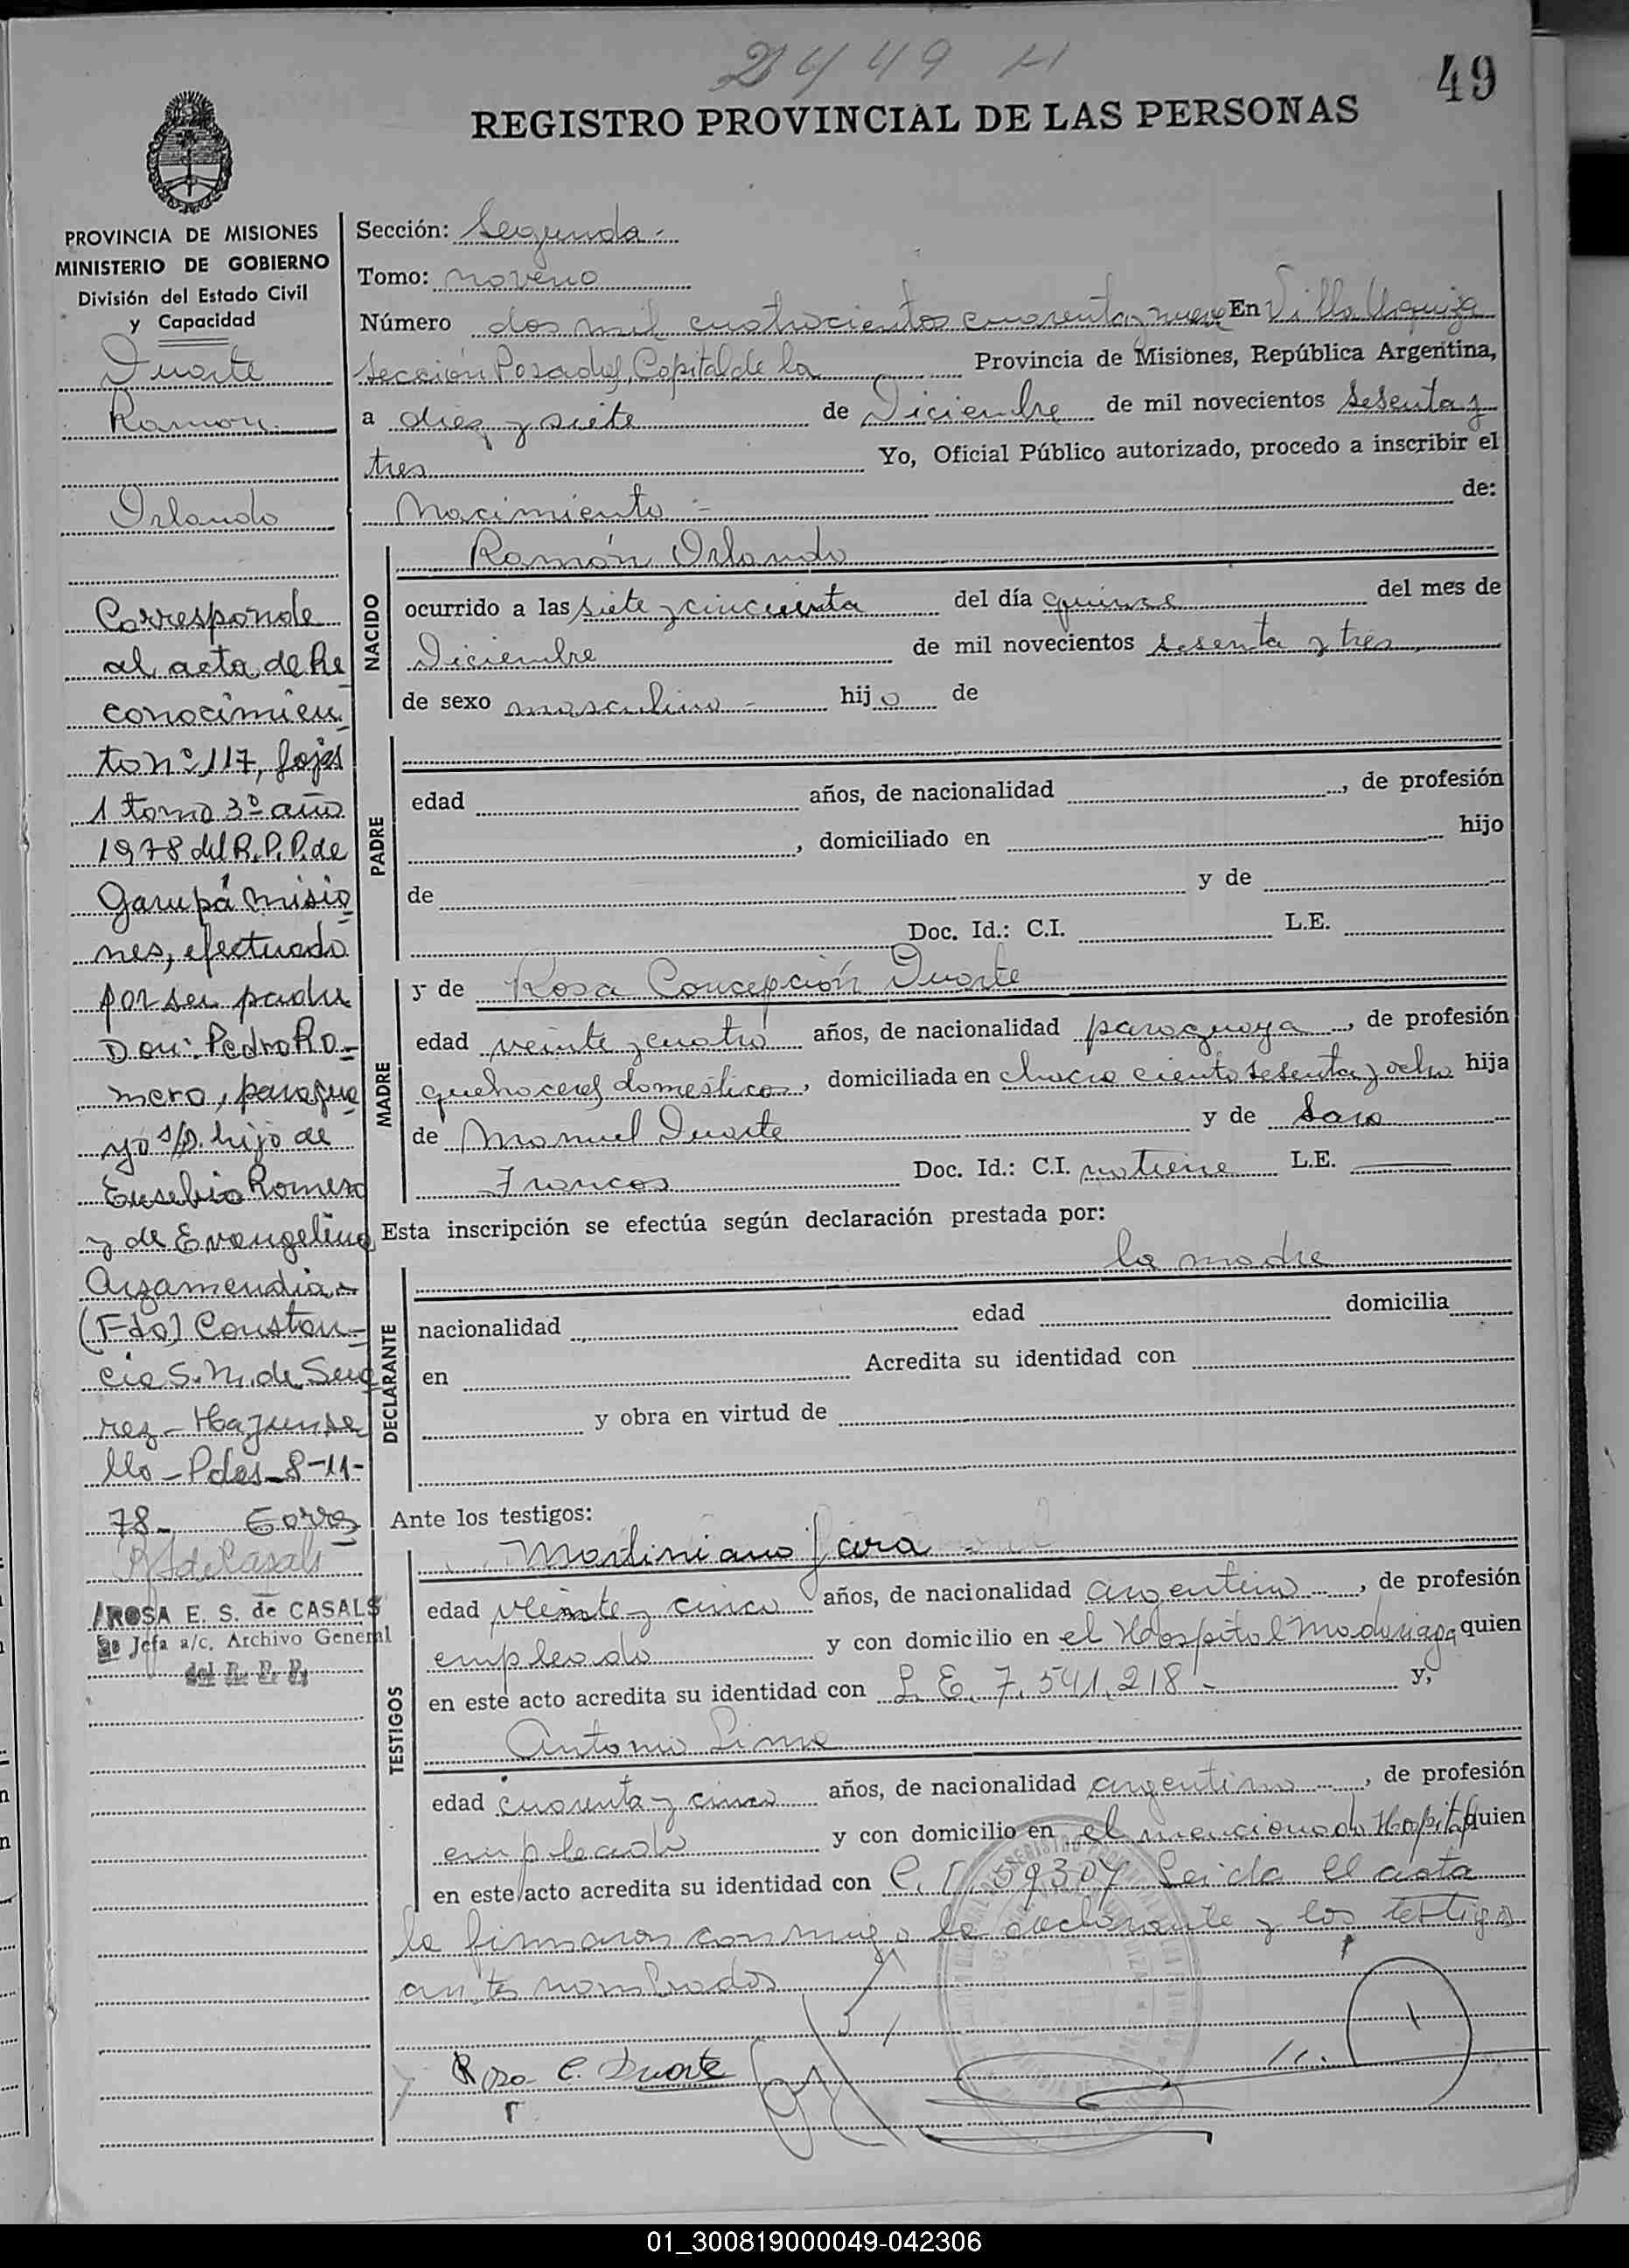 2449 H
49
REGISTRO PROVINCIAL DE LAS PERSONAS
PROVINCIA DE MISIONES
MINISTERIO DE GOBIERNO
División del Estado Civil
y Capacidad
Duarte
Ramon
Orlando
Corresponde
al acta de Re
conocimien
to nº 117, fojas
1 tomo 3º año
1978 del R.P.P. de
Garupá Misio
nes, efectuado
por su padre
Don: Pedro Ro-
mero, paragua
yo s/D. hijo de
Eusebio Romero
y de Evangelina
Arzamendia-
(Fdo) Constan-
cia S. M. de Sua
rez - Hay un se
llo - Pdas - 8-11-
78-
ROSA E. S. de CASALS
Jefa a/c. Archivo General
del R. P. P.
Sección: Segunda -
Tomo: noveno
Número dos mil cuatrocientos cuarenta y nueve En Villa Urquiza
Sección Posadas, Capital de la Provincia de Misiones, República Argentina,
a diez y siete de Diciembre de mil novecientos sesenta y
tres Yo, Oficial Público autorizado, procedo a inscribir el
Nacimiento - de:
NACIDO
Ramón Orlando
ocurrido a las siete y cincuenta del día quince del mes de
Diciembre de mil novecientos sesenta y tres
de sexo masculino - hijo de
PADRE
edad años, de nacionalidad , de profesión
, domiciliado en hijo
de y de
Doc. Id.: C.I. L.E.
MADRE
y de Rosa Concepción Duarte
edad veinte y cuatro años, de nacionalidad paraguaya , de profesión
quehaceres domesticos , domiciliada en chacra ciento sesenta y ocho hija
de Manuel Duarte y de Sara
Francos Doc. Id.: C.I. no tiene L.E.
Esta inscripción se efectúa según declaración prestada por:
la madre
DECLARANTE
nacionalidad edad domicilia
en Acredita su identidad con
y obra en virtud de
Ante los testigos:
TESTIGOS
Martiniano Jara
edad veinte y cinco años, de nacionalidad argentino , de profesión
empleado y con domicilio en el Hospital Madariaga quien
en este acto acredita su identidad con L E. 7.541.218 - y,
Antonio Lima
edad cuarenta y cinco años, de nacionalidad argentino , de profesión
empleado y con domicilio en el mencionado Hospital quien
en este acto acredita su identidad con C. I. 59307 Leida el acta
la firmaron conmigo la declarante y los testigos
antes nombrados
Rosa C. Duarte
01_300819000049-042306